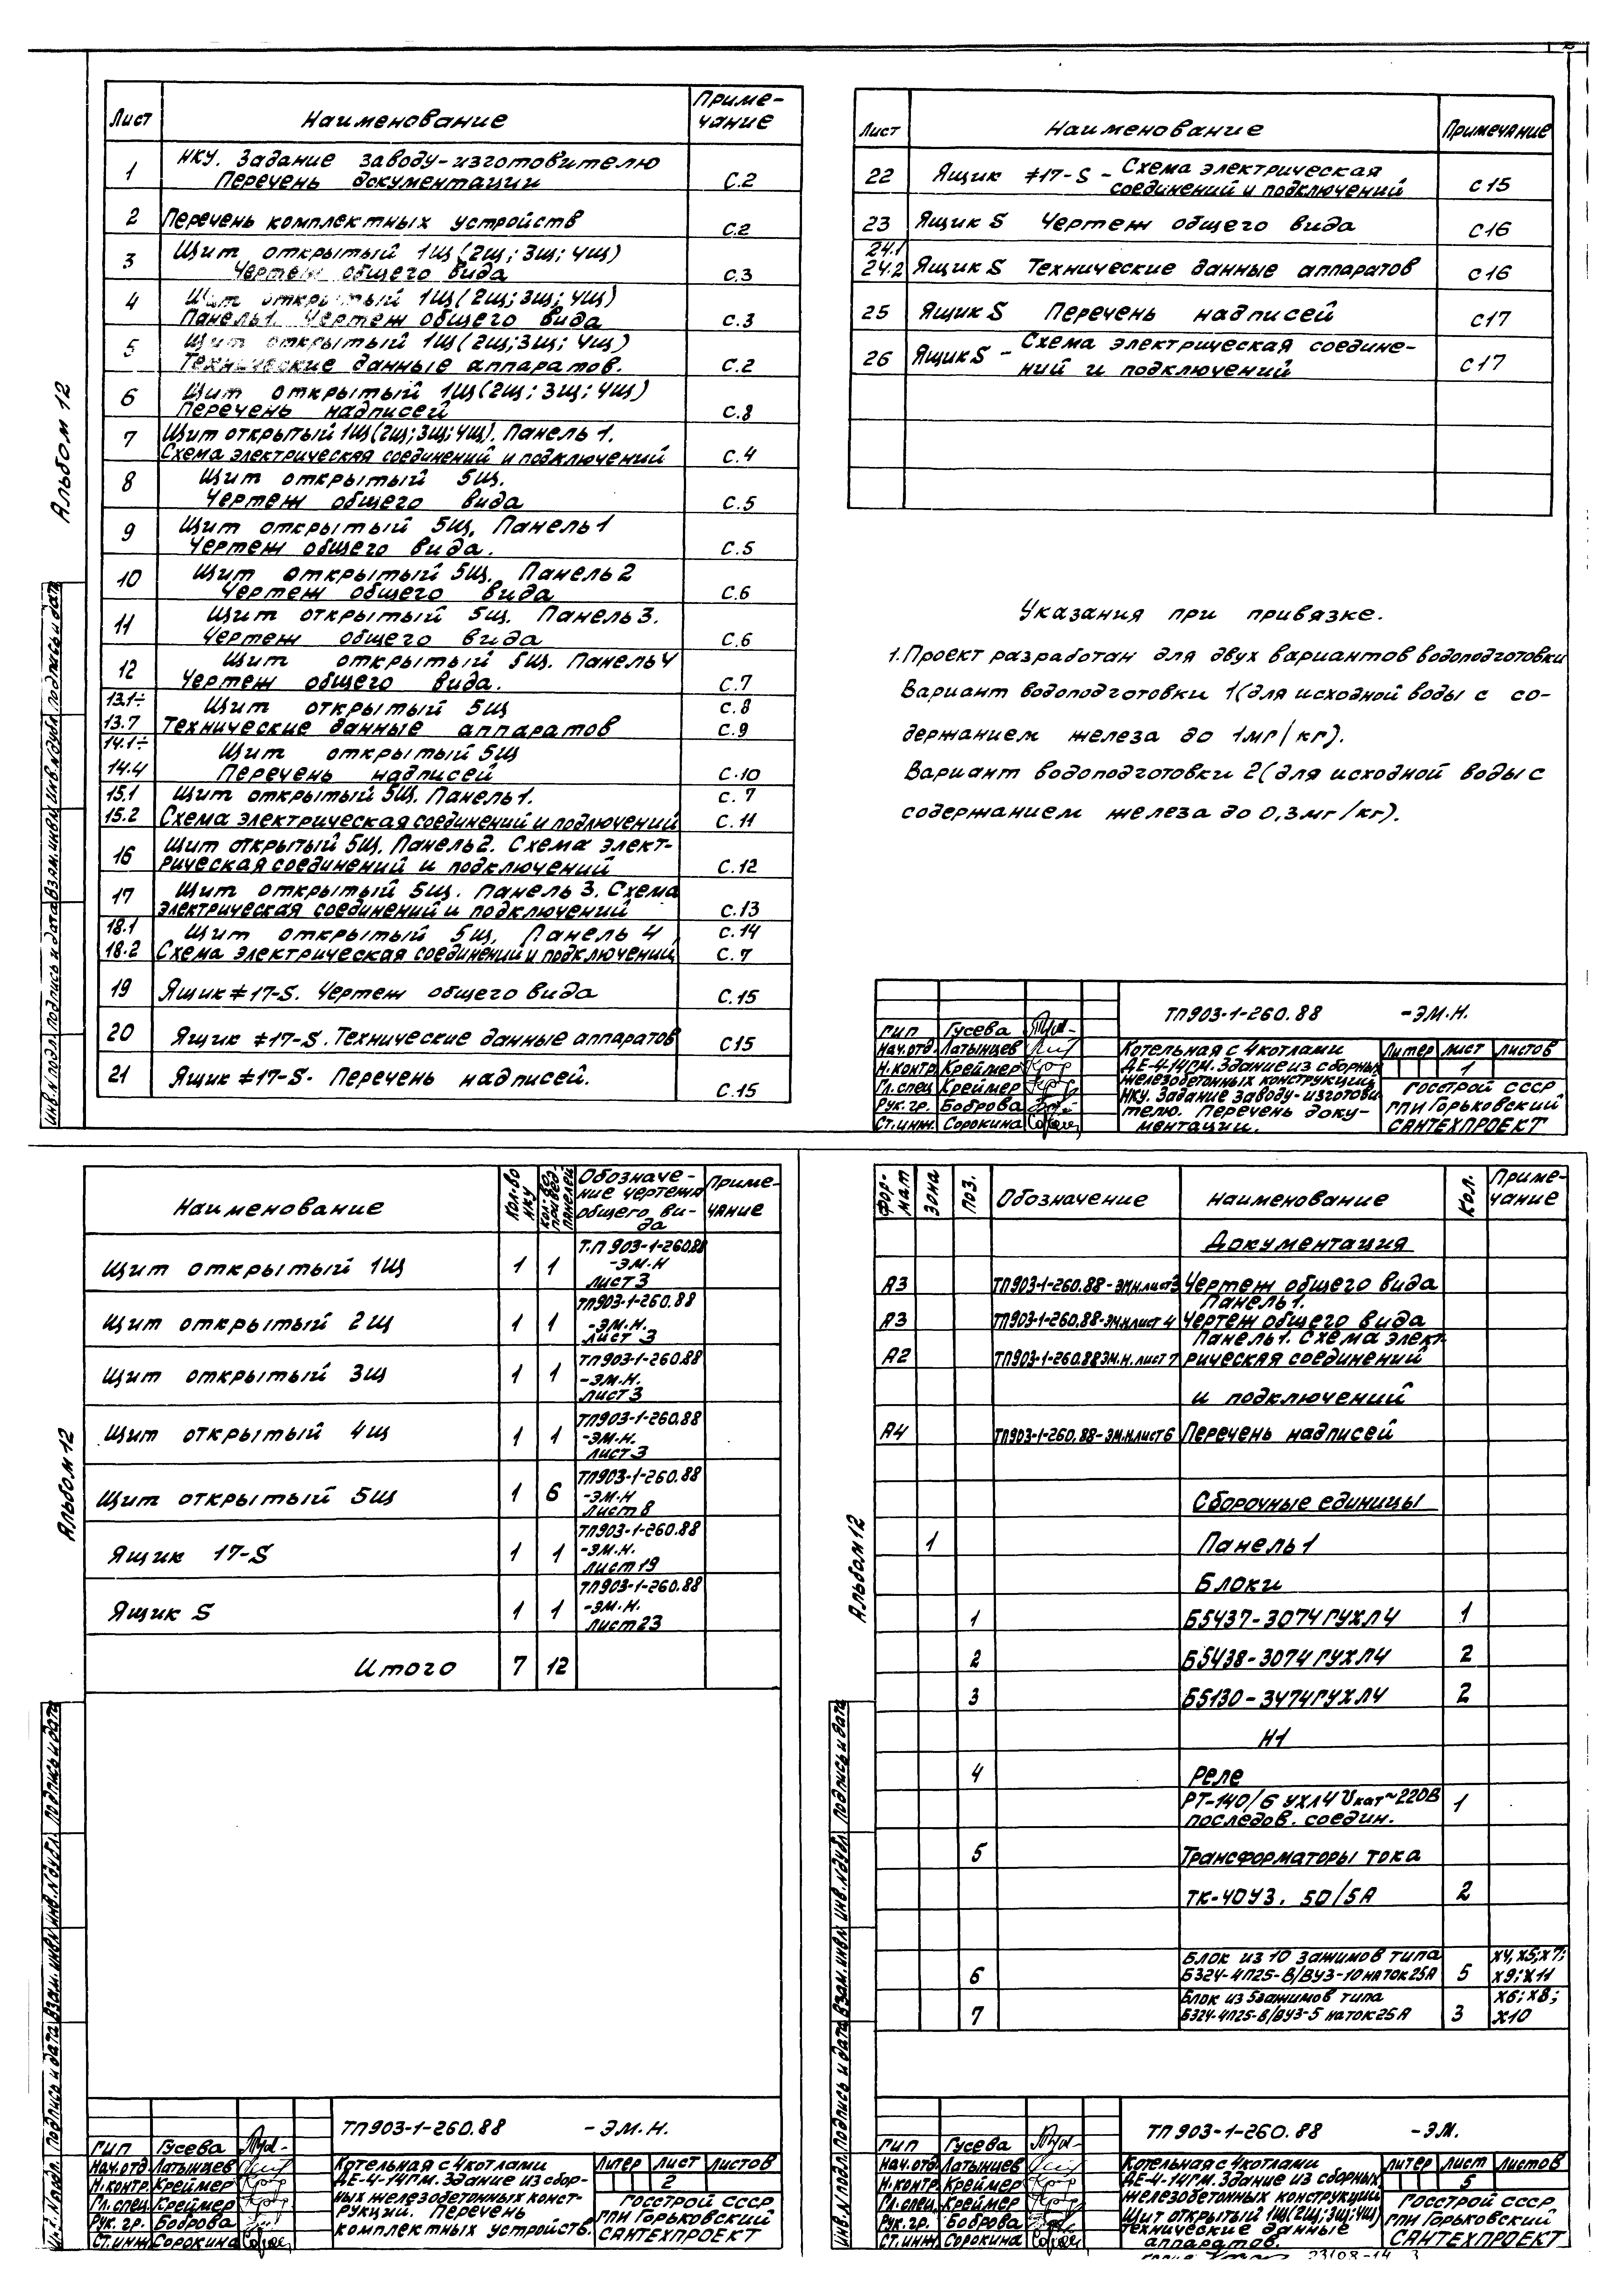 Альбом 12
Лист Наименование Приме-
чание
1 НКУ. Задание заводу-изготовителю
Перечень документации С.2
2 Перечень комплектных устройств С.2
3 Щит открытый 1Щ(2щ; 3щ; 4щ)
Чертеж общего вида С.3
4 Щит открытый 1Щ(2щ; 3щ; 4щ)
Панель 1. Чертеж общего вида С.3
5 Щит открытый 1Щ(2щ; 3щ; 4щ)
Технические данные аппаратов. С.2
6 Щит открытый 1Щ(2щ; 3щ; 4щ)
Перечень надписей С.8
7 Щит открытый 1Щ(2щ; 3щ; 4щ). Панель 1.
Схема электрическая соединений и подключений С.4
8 Щит открытый 5щ.
Чертеж общего вида С.5
9 Щит открытый 5щ. Панель 1
Чертеж общего вида. С.5
10 Щит открытый 5щ. Панель 2
Чертеж общего вида С.6
11 Щит открытый 5щ. Панель 3.
Чертеж общего вида С.6
12 Щит открытый 5щ. Панель 4
Чертеж общего вида. С.7
13.1÷ Щит открытый 5щ С.8
13.7 Технические данные аппаратов С.9
14.1÷ Щит открытый 5щ
14.4 Перечень надписей С.10
15.1 Щит открытый 5щ. Панель 1. С.7
15.2 Схема электрическая соединений и подлючений С.11
16 Щит открытый 5щ. Панель 2. Схема элект-
рическая соединений и подключений С.12
17 Щит открытый 5щ. Панель 3. Схема
электрическая соединений и подключений С.13
18.1 Щит открытый 5щ, Панель 4 С.14
18.2 Схема электрическая соединений и подключений С.7
19 Ящик ≠17-S. Чертеж общего вида С.15
20 Ящик ≠17-S. Технические данные аппаратов С15
21 Ящик ≠17-S. Перечень надписей. С.15
Инв.N подл. Подпись и дата Взам.инв.N Инв.N дубл. Подпись и дата
Лист Наименование Примечание
22 Ящик ≠17-S - Схема электрическая
соединений и подключений С15
23 Ящик S Чертеж общего вида С16
24.1
24.2 Ящик S Технические данные аппаратов С16
25 Ящик S Перечень надписей С17
26 Ящик S - Схема электрическая соедине-
ний и подключений С17
Указания при привязке.
1. Проект разработан для двух вариантов водоподготовки
Вариант водоподготовки 1(для исходной воды с со-
держанием железа до 1мг/кг).
Вариант водоподготовки 2(для исходной воды с
содержанием железа до 0,3мг/кг).
ТП903-1-260.88 -ЭМ.Н.
ГИП Гусева
Нач.отд. Латынцев
Н.контр. Креймер
Гл.спец Креймер
Рук.гр. Боброва
Ст.инж. Сорокина
Котельная с 4 котлами
ДЕ-4-14ГМ. Здание из сборных
железобетонных конструкций
НКУ. Задание заводу-изготови-
телю. Перечень доку-
ментации.
Литер Лист Листов
1
Госстрой СССР
ГПИ Горьковский
САНТЕХПРОЕКТ
Альбом 12
Наименование Кол-во НКУ Кол-во привед. панелей Обозначе-
ние чертежа
общего ви-
да Приме-
чание
Щит открытый 1щ 1 1 Т.П 903-1-260.88
-ЭМ.Н
лист 3
Щит открытый 2щ 1 1 ТП903-1-260.88
-ЭМ.Н.
лист 3
Щит открытый 3щ 1 1 ТП903-1-260.88
-ЭМ.Н.
лист 3
Щит открытый 4щ 1 1 ТП903-1-260.88
-ЭМ.Н.
лист 3
Щит открытый 5щ 1 6 ТП903-1-260.88
-ЭМ.Н
лист 8
Ящик 17-S 1 1 ТП903-1-260.88
-ЭМ.Н.
лист 19
Ящик S 1 1 ТП903-1-260.88
-ЭМ.Н.
лист 23
Итого 7 12
Инв.N подл. Подпись и дата Взам.инв.N Инв.N дубл. Подпись и дата
ТП903-1-260.88 -ЭМ.Н.
ГИП Гусева
Нач.отд Латынцев
Н.контр. Креймер
Гл.спец. Креймер
Рук.гр. Боброва
Ст.инж Сорокина
Котельная с 4 котлами
ДЕ-4-14ГМ. Здание из сбор-
ных железобетонных конст-
рукций. Перечень
комплектных устройств.
Литер Лист Листов
2
Госстрой СССР
ГПИ Горьковский
САНТЕХПРОЕКТ
Альбом 12
Фор-
мат Зона Поз. Обозначение Наименование Кол. Приме-
чание
Документация
А3 ТП903-1-260.88-ЭМ.Н.лист 3 Чертеж общего вида
Панель 1.
А3 ТП903-1-260.88-ЭМ.Н.лист 4 Чертеж общего вида
Панель 1. Схема элект-
А2 ТП903-1-260.88ЭМ.Н.лист 7 рическая соединений
и подключений
А4 ТП903-1-260.88-ЭМ.Н.лист 6 Перечень надписей
Сборочные единицы
1 Панель 1
Блоки
1 Б5437-3074ГУХЛ4 1
2 Б5438-3074ГУХЛ4 2
3 Б5130-3474ГУХЛ4 2
Н1
4 Реле
РТ-140/6 УХЛ4 Uкат~220В 1
последов. соедин.
5 Трансформаторы тока
ТК-40У3. 50/5А 2
Блок из 10 зажимов типа Х4, Х5; Х7;
6 Б324-4П25-В/ВУ3-10 на ток 25А 5 Х9; Х11
Блок из 5 зажимов типа Х6; Х8;
7 Б324-4П25-В/ВУ3-5 на ток 25А 3 Х10
Инв.N подл. Подпись и дата Взам.инв.N Инв.N дубл. Подпись и дата
ТП903-1-260.88 -ЭМ.
ГИП Гусева
Нач.отд. Латынцев
Н.контр. Креймер
Гл.спец. Креймер
Рук.гр. Боброва
Ст.инж Сорокина
Котельная с 4 котлами
ДЕ-4-14ГМ. Здание из сборных
железобетонных конструкции
Щит открытый 1Щ(2щ; 3щ; 4щ)
Технические данные
аппаратов.
Литер Лист Листов
5
Госстрой СССР
ГПИ Горьковский
САНТЕХПРОЕКТ
23108-14 3